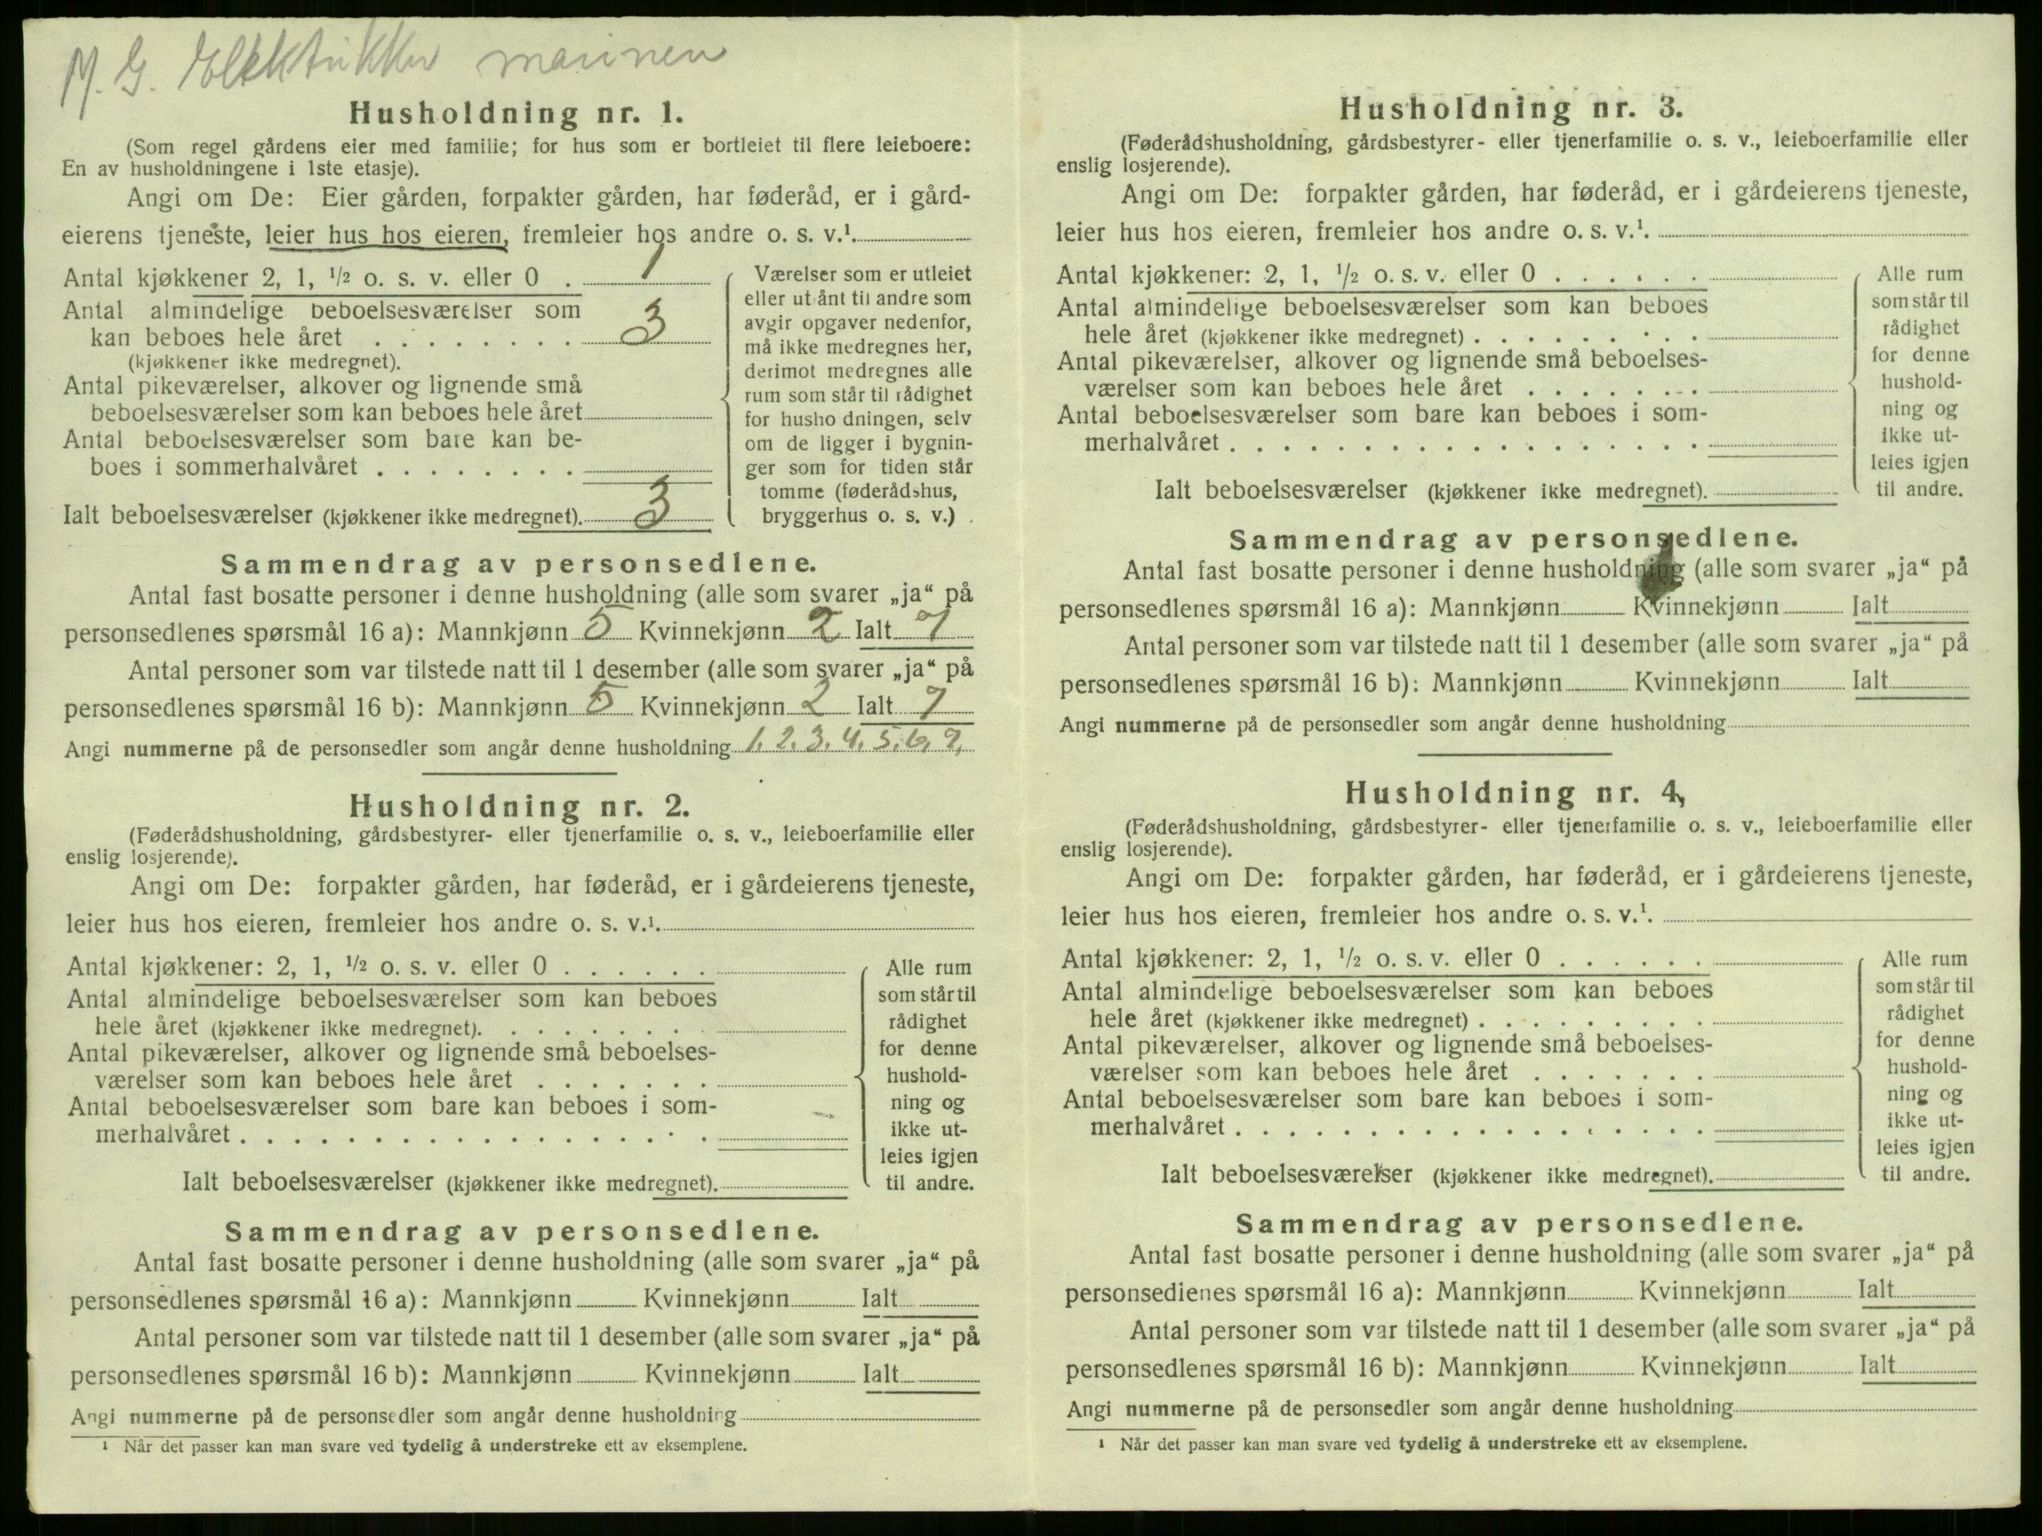 M. G. Elektrikker marinen
Husholdning nr. 1.
(Som regel gårdens eier med familie; for hus som er bortleiet til flere leieboere:
En av husholdningene i 1ste etasje).
Angi om De: Eier gården, forpakter gården, har føderåd, er i gård-
eierens tjeneste, leier hus hos eieren, fremleier hos andre o. s. v.¹.
Antal kjøkkener 2, 1, ½ o. s. v. eller 0 . 1
Antal almindelige beboelsesværelser som
kan beboes hele året . . . . . . . . 3
(kjøkkener ikke medregnet).
Antal pikeværelser, alkover og lignende små
beboelsesværelser som kan beboes hele året
Antal beboelsesværelser som bare kan be-
boes i sommerhalvåret . . . . . . . .
Ialt beboelsesværelser (kjøkkener ikke medregnet). 3
Værelser som er utleiet
eller ut ånt til andre som
avgir opgaver nedenfor,
må ikke medregnes her,
derimot medregnes alle
rum som står til rådighet
for husho dningen, selv
om de ligger i bygnin-
ger som for tiden står
tomme (føderådshus,
bryggerhus o. s. v.) .
Sammendrag av personsedlene.
Antal fast bosatte personer i denne husholdning (alle som svarer „ja“ på
personsedlenes spørsmål 16 a): Mannkjønn 5 Kvinnekjønn 2 Ialt 7
Antal personer som var tilstede natt til 1 desember (alle som svarer „ja“ på
personsedlenes spørsmål 16 b): Mannkjønn 5 Kvinnekjønn 2 Ialt 7
Angi nummerne på de personsedler som angår denne husholdning 1. 2. 3. 4. 5. 6. 7.
Husholdning nr. 2.
(Føderådshusholdning, gårdsbestyrer- eller tjenerfamilie o. s. v., leieboerfamilie eller
enslig losjerende).
Angi om De: forpakter gården, har føderåd, er i gårdeierens tjeneste,
leier hus hos eieren, fremleier hos andre o. s. v.¹.
Antal kjøkkener: 2, 1, ½ o. s. v. eller 0 . . . . . .
Antal almindelige beboelsesværelser som kan beboes
hele året (kjøkkener ikke medregnet). . . . . . . . .
Antal pikeværelser, alkover og lignende små beboelses-
værelser som kan beboes hele året . . . . . . .
Antal beboelsesværelser som bare kan beboes i som-
merhalvåret . . . . . . . . . . . . . . . . . .
Ialt beboelsesværelser (kjøkkener ikke medregnet).
Alle rum
som står til
rådighet
for denne
hushold-
ning og
ikke ut-
leies igjen
til andre.
Sammendrag av personsedlene.
Antal fast bosatte personer i denne husholdning (alle som svarer „ja“ på
personsedlenes spørsmål 16 a): Mannkjønn Kvinnekjønn Ialt
Antal personer som var tilstede natt til 1 desember (alle som svarer „ja“ på
personsedlenes spørsmål 16 b): Mannkjønn Kvinnekjønn Ialt
Angi nummerne på de personsedler som angår denne husholdning
¹ Når det passer kan man svare ved tydelig å understreke ett av eksemplene.
Husholdning nr. 3.
(Føderådshusholdning, gårdsbestyrer- eller tjenerfamilie o. s. v., leieboerfamilie eller
enslig losjerende).
Angi om De: forpakter gården, har føderåd, er i gårdeierens tjeneste,
leier hus hos eieren, fremleier hos andre o. s. v.¹.
Antal kjøkkener: 2, 1, ½ o. s. v. eller 0 . . . . . .
Antal almindelige beboelsesværelser som kan beboes
hele året (kjøkkener ikke medregnet) . . . . . . . . .
Antal pikeværelser, alkover og lignende små beboelses-
værelser som kan beboes hele året . . . . . . .
Antal beboelsesværelser som bare kan beboes i som-
merhalvåret . . . . . . . . . . . . . . . . . .
Ialt beboelsesværelser (kjøkkener ikke medregnet).
Alle rum
som står til
rådighet
for denne
hushold-
ning og
ikke ut-
leies igjen
til andre.
Sammendrag av personsedlene.
Antal fast bosatte personer i denne husholdning (alle som svarer „ja“ på
personsedlenes spørsmål 16 a): Mannkjønn Kvinnekjønn Ialt
Antal personer som var tilstede natt til 1 desember (alle som svarer „ja“ på
personsedlenes spørsmål 16 b): Mannkjønn Kvinnekjønn Ialt
Angi nummerne på de personsedler som angår denne husholdning
Husholdning nr. 4,
(Føderådshusholdning, gårdsbestyrer- eller tjenerfamilie o. s. v., leieboerfamilie eller
enslig losjerende).
Angi om De: forpakter gården, har føderåd, er i gårdeierens tjeneste,
leier hus hos eieren, fremleier hos andre o. s. v.¹.
Antal kjøkkener: 2, 1, ½ o. s. v. eller 0 . . . . . .
Antal almindelige beboelsesværelser som kan beboes
hele året (kjøkkener ikke medregnet) . . . . . . . . .
Antal pikeværelser, alkover og lignende små beboelses-
værelser som kan beboes hele året . . . . . . .
Antal beboelsesværelser som bare kan beboes i som-
merhalvåret . . . . . . . . . . . . . . . . . .
Ialt beboelsesværelser (kjøkkener ikke medregnet).
Alle rum
som står til
rådighet
for denne
hushold-
ning og
ikke ut-
leies igjen
til andre.
Sammendrag av personsedlene.
Antal fast bosatte personer i denne husholdning (alle som svarer „ja“ på
personsedlenes spørsmål 16 a): Mannkjønn Kvinnekjønn Ialt
Antal personer som var tilstede natt til 1 desember (alle som svarer „ja“ på
personsedlenes spørsmål 16 b): Mannkjønn Kvinnekjønn Ialt
Angi nummerne på de personsedler som angår denne husholdning
¹ Når det passer kan man svare ved tydelig å understreke ett av eksemplene.